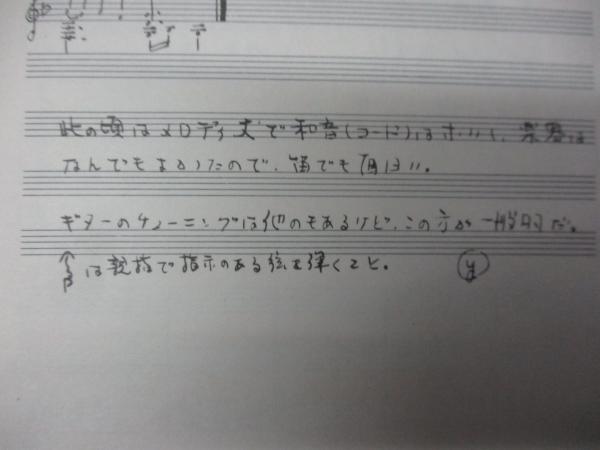 此の頃はメロディ丈で和音(コード)はホシイ、楽器は
なんでもよかったので、笛でも
ギターのチューニングは他のもあるけど、この方が一般的だ。
は親指で指示のある弦を弾くこと。
y